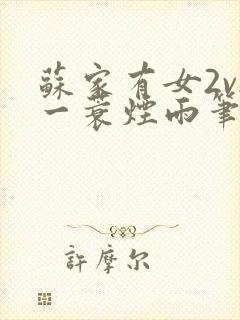 蘇家有女2v
一蓑煙雨筆
許摩尔